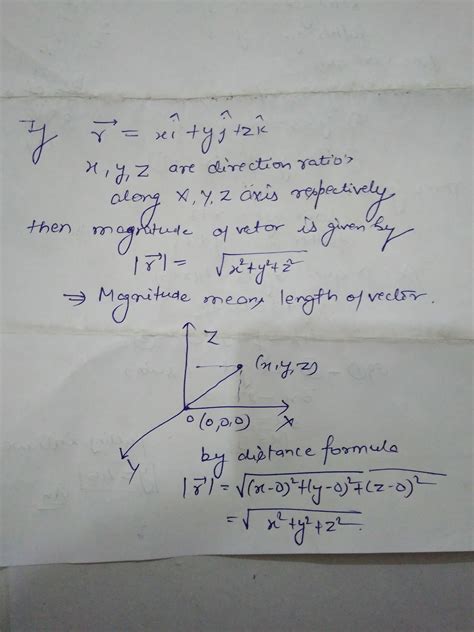 If r⃗ = xî + yĵ + zk̂
x, y, z are direction ratios
along X, Y, Z axis respectively
then magnitude of vector is given by
|r⃗| = √x²+y²+z²
⇒ Magnitude means length of vector.
Z
(x, y, z)
O (0,0,0)
X
Y
by distance formula
|r⃗| = √(x-0)²+(y-0)²+(z-0)²
= √x²+y²+z²